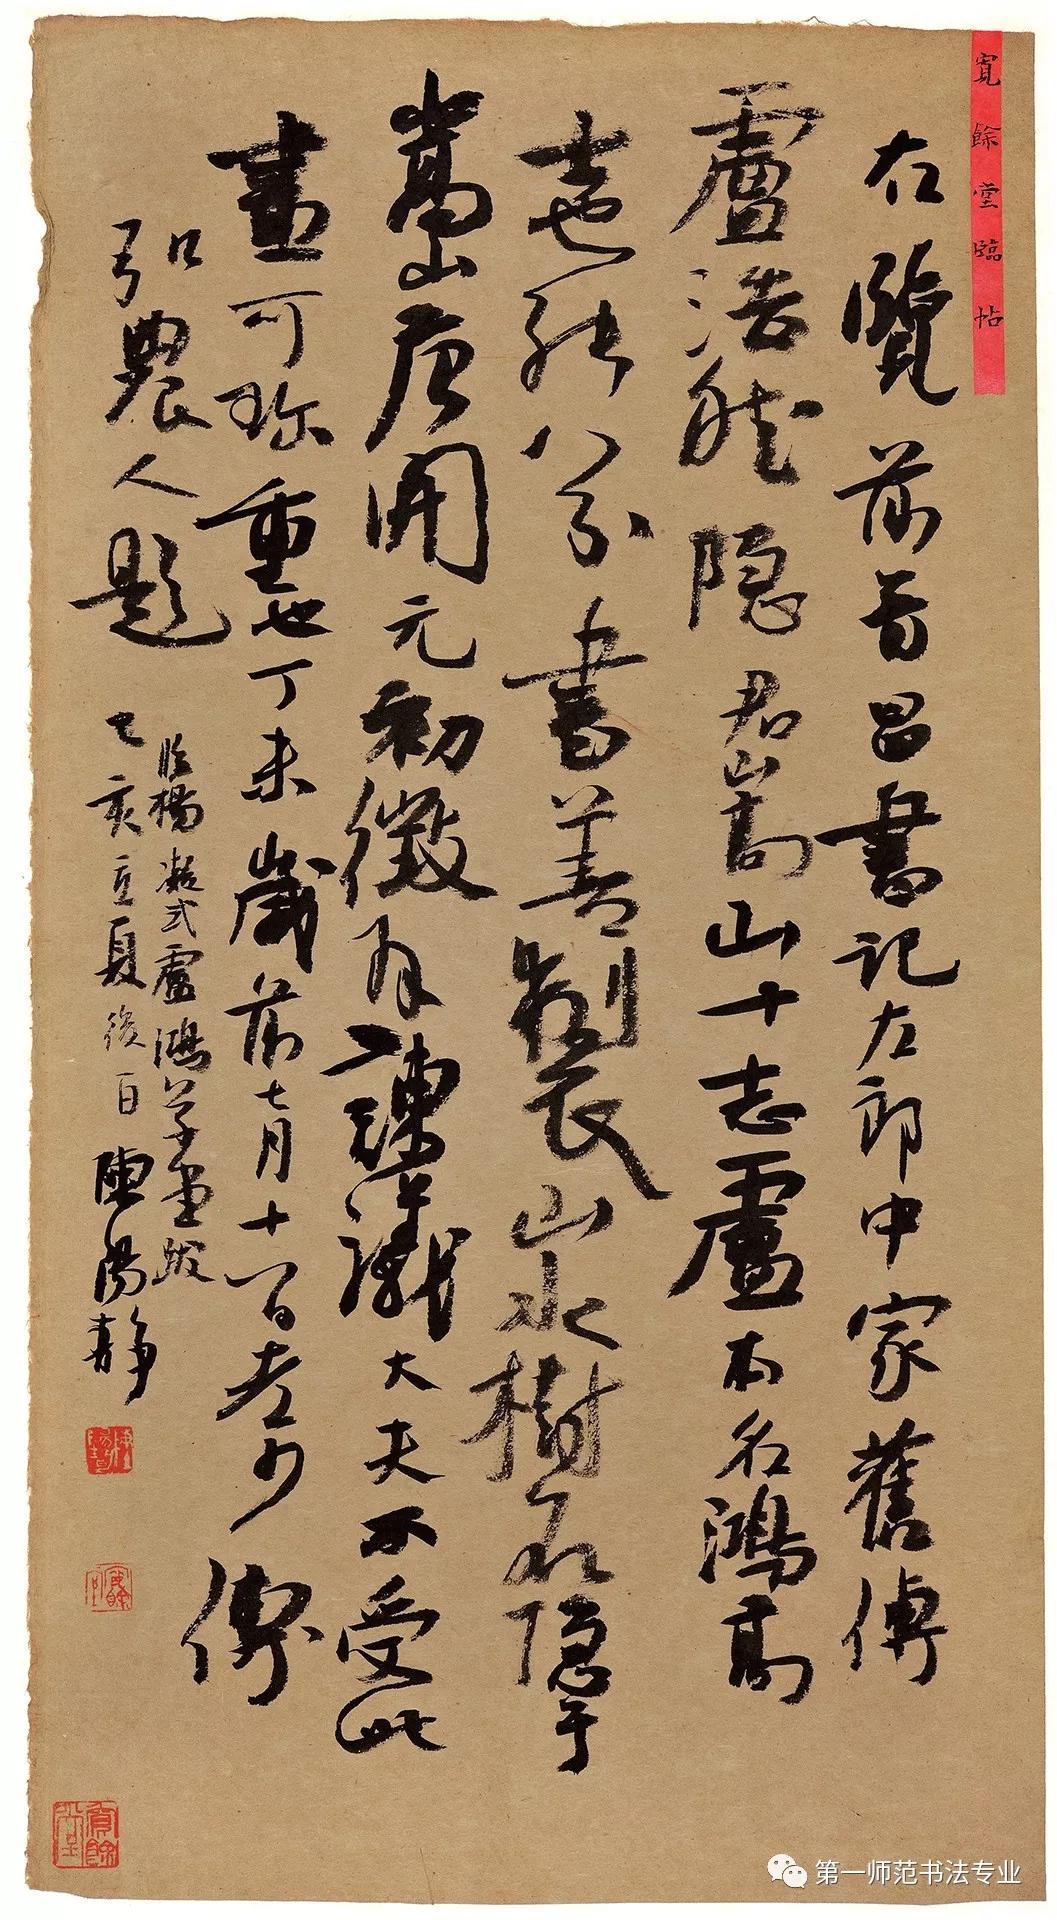 寬餘堂臨帖
右覽前晉昌書記左郎中家舊傳
盧浩然隱君嵩山十志盧本名鴻高
士也能八分書善製山水樹石隱于
嵩山唐開元初徵拜諫議大夫不受此
畫可珍重也丁未歲前七月十八日老少傅
弘農人題
臨楊凝式盧鴻草堂跋
己亥立夏後一日陳陽靜
寬餘堂
第一师范书法专业